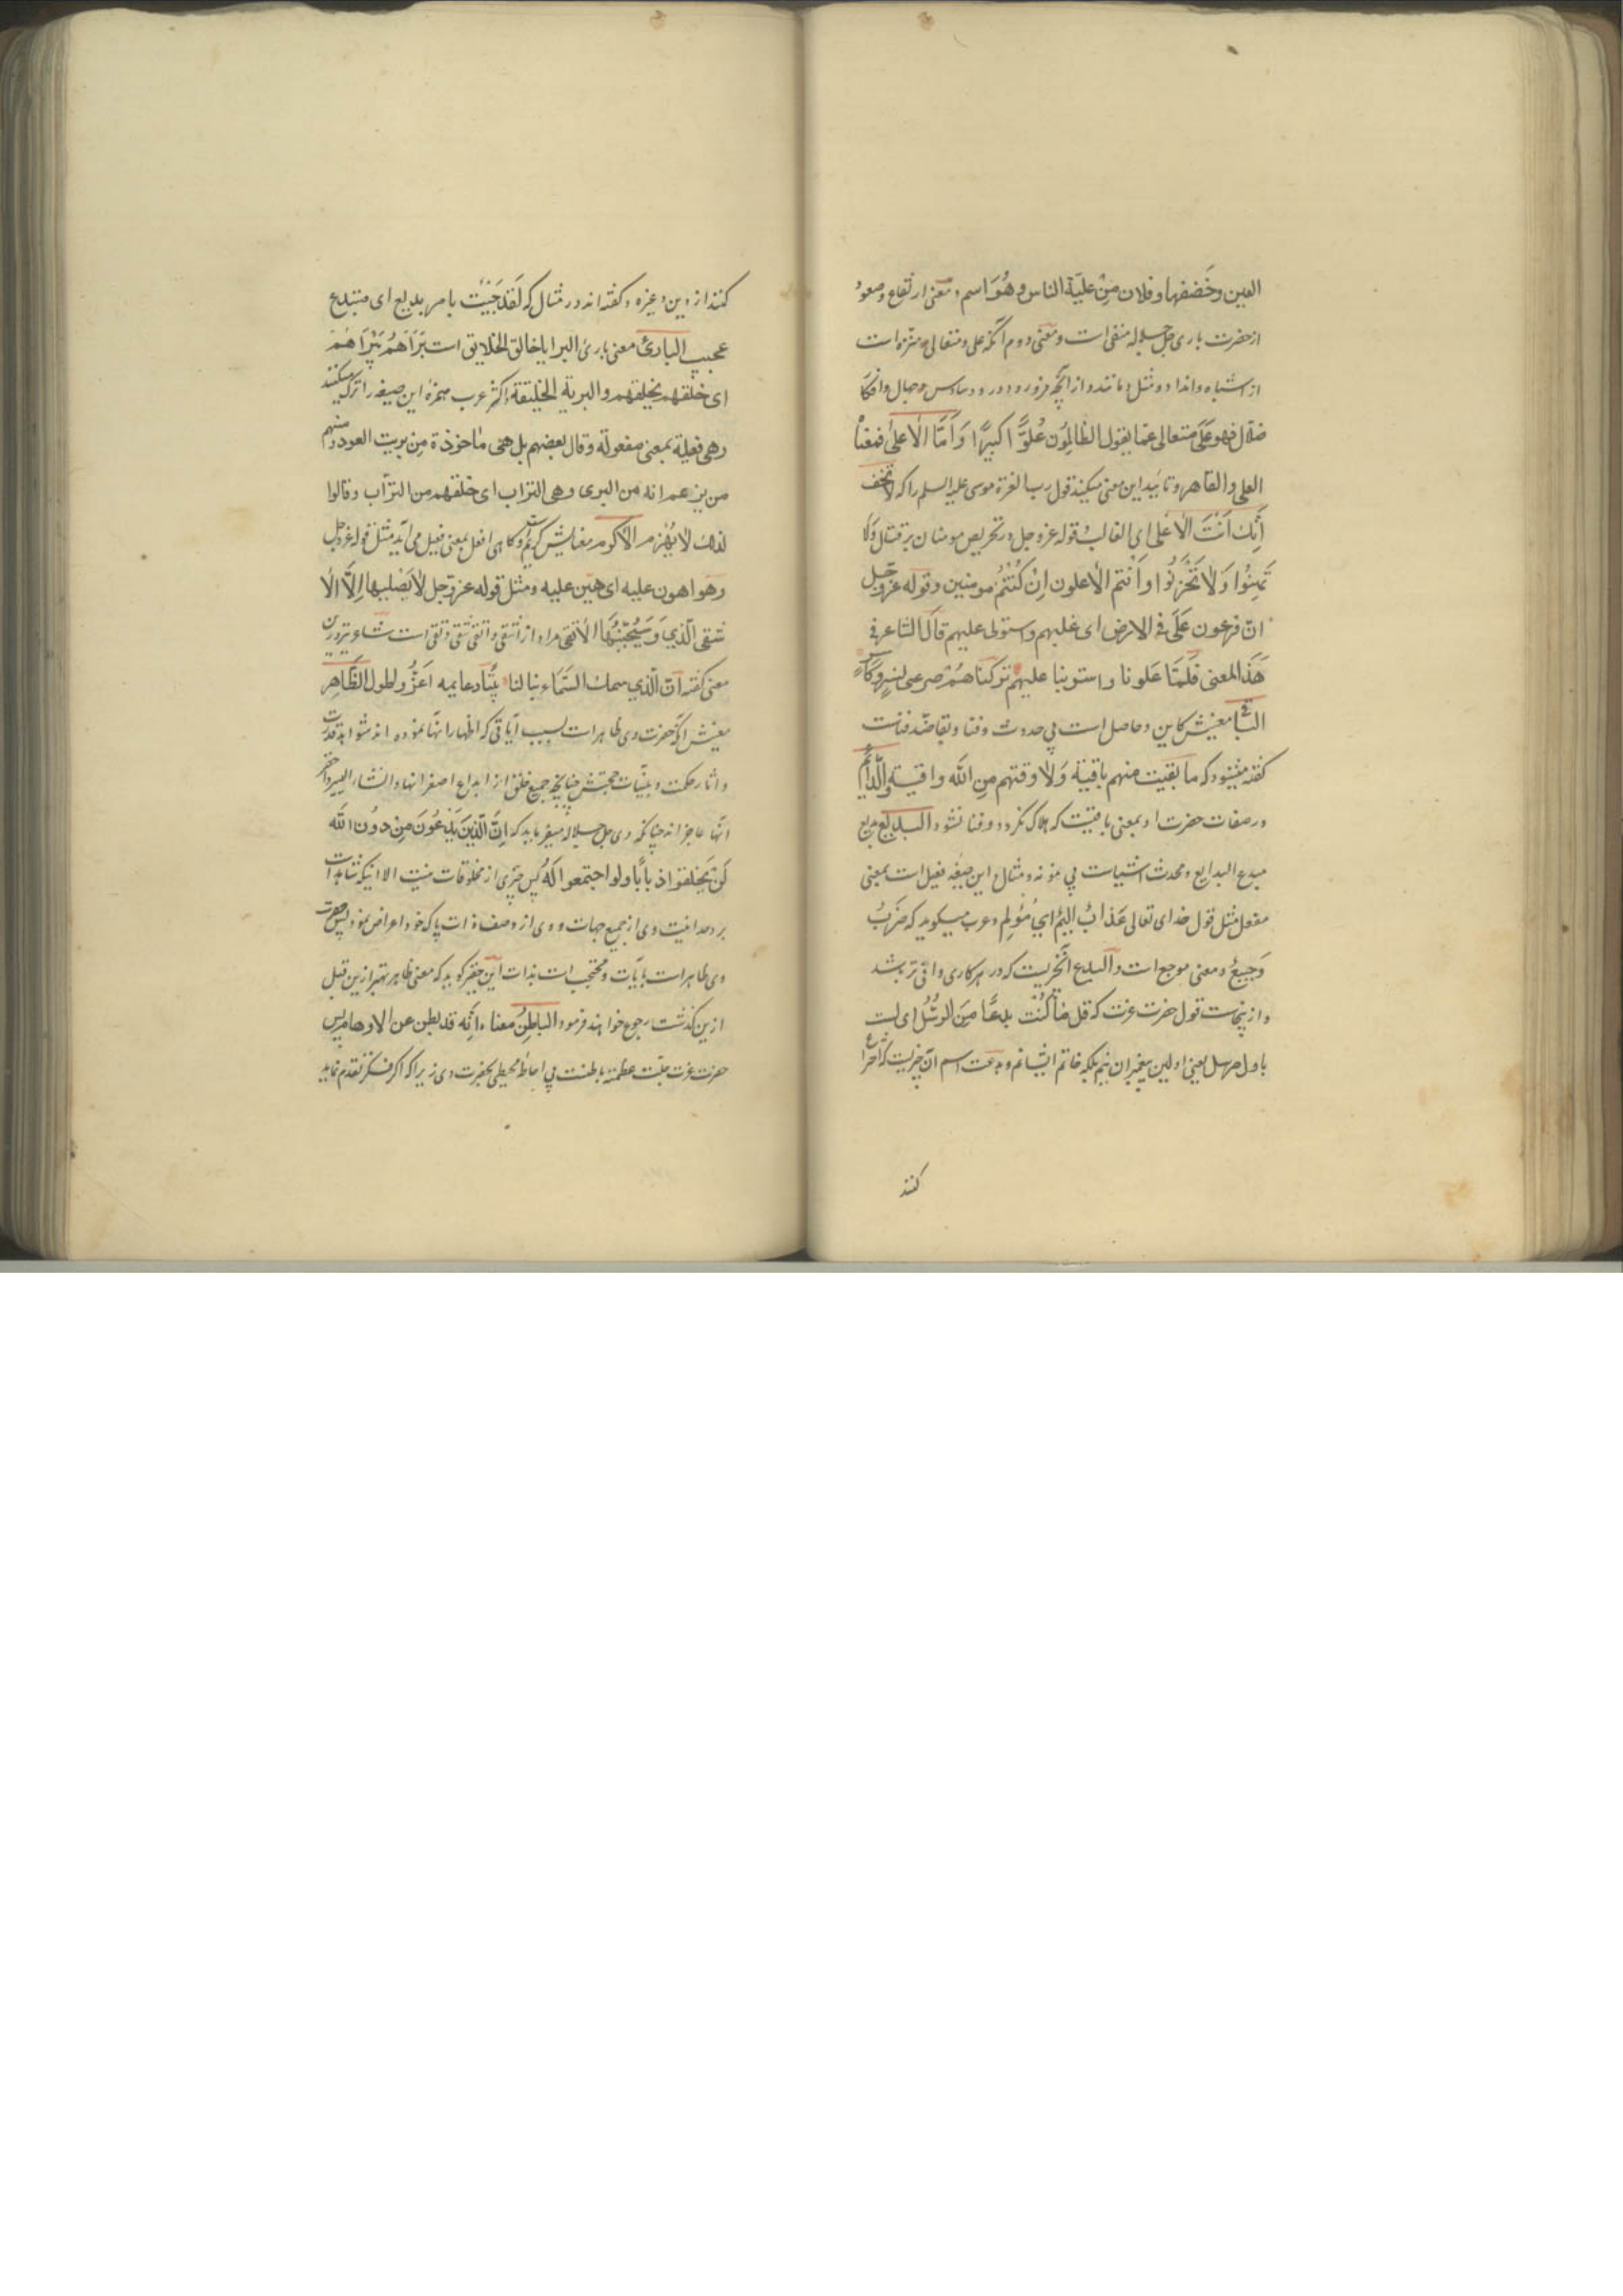 العین وخفضها وفلان من علیة الناس وهو اسم و معنی ارتفاع وصعود
از حضرت باری جل جلاله منفی است ومعنی دوم آنکه علی ومتعالی ومنزه است
از اشباه وانداد ومثل ومانند واز آنچه فرو رود در وساوس جهال وافکار
ضلال فهو علی متعالی عما یقول الظالمون علوا کبیرا وَاَمّا الاعلی فمعناه
العلی والقاهر وتائید این معنی میکند قول رب العزة موسی علیه السلم را که لا تخف
اِنّک اَنْتَ الاَعْلی ای الغالب قوله عز وجل در تحریص مومنان بر قتال وَلا
تَهِنُوا وَلا تَحْزَنُوا واَنتم الاعلون اِنْ کُنْتُمْ مومنین وقوله عز وجل
انّ فرعون عَلَی فی الارض ای غلبهم واستولی علیهم قال الشاعر فی
هَذَا المعنی فَلَمّا عَلَونا واستوینا علیهم ترکناهم صرعی لنسر وکاسر
الباقی معنیش کاین وحاصل است بی حدوث وفنا وبقا ضد فناست
گفته میشود که ما بقیت منهم باقیة وَلا وقتهم من الله واقیة والدّائم
در صفات حضرت او بمعنی باقیست که هلاک نگردد وفنا نشود البدیع بدیع
مبدع البدایع ومحدث اشیاست بی نمونه ومثال این صیغه فعیل است بمعنی
مفعل مثل قول خدای تعالی عَذابٌ الیمٌ ای مُؤلِم وعرب میگوید که ضَرْبٌ
وَجیعٌ ومعنی موجع است والبدع آنچیزیست که در هر کاری واقی تر باشد
واز ینجاست قول حضرت عزت که قل ما کُنْت بِدعًا مِنَ الرُّسُل ای لست
باول مرسل یعنی اولین پیغمبران نیم بلکه خاتم ایشانم وبدعت اسم آن چیزیست که اختراع
کنند
کنند از دین وغیره وگفته اند در مثال که لَقَد جِئْتَ بامر بدیع ای مبتدع
عجیب البادئ معنی بارئ البرایا خالق الخلایق است بَرَاَهُمْ یَبْرَاَهُمْ
ای خلقهم یخلقهم والبریة الخلیقة اکثر عرب همزه این صیغه را ترک میکنند
وهی فعیلة بمعنی مفعولة وقال بعضهم بل هی ماخوذة مِن بریت العود ومنهم
من یزعم انه من البری وهی التراب ای خلقهم من التراب وقالوا
لذلک لا یهزم الاکرم معنایش کریم است وگاهی افعل بمعنی فعیل می آید مثل قوله عزوجل
وهو اهون علیه ای هین علیه ومثل قوله عزوجل لا یَصْلیها اِلَّا الا
شقی الّذی وَسَیُجَنّبُهَا الاتقی مراد از اشقی واتقی شقی وتقی است شاعر نیز درین
معنی گفته انّ الّذی سمک السّماء بنا لنا بیتًا دعایمه اعزّ واطول الظّاهر
معنیش آنکه حضرت وی ظاهر است بسبب آیاتی که اظهار آنها نموده اند شواهد قدرت
واثار حکمت وبینات حجتش چنانچه جمیع خلق از ابداع اصغر انها وانشاء ایسر واحقر
انها عاجز اند چنانکه وی جل جلاله میفرماید که اِنّ الّذِینَ یَدْعُونَ مِن دونِ الله
لَن یَخلقوا ذبابًا ولو اجتمعوا لَهُ پس چیزی از مخلوقات نیست الا انکه شاهد است
بر وحدانیت وی از جمیع جهات ووی از وصف ذات پاک خود اعراض نمود پس حضرت
وی ظاهر است بایّات ومحتجب است بذات این حقیر گوید که معنی ظاهر بهتر ازین قبل
ازین گذشت رجوع خواهند فرمود الباطِنُ معناه اَنّه قد بطن عن الاوهام پس
حضرت عزت جلت عظمته باطنست بی احاطه محیطی بحضرت وی زیرا که اگر فکر تقدم نماید